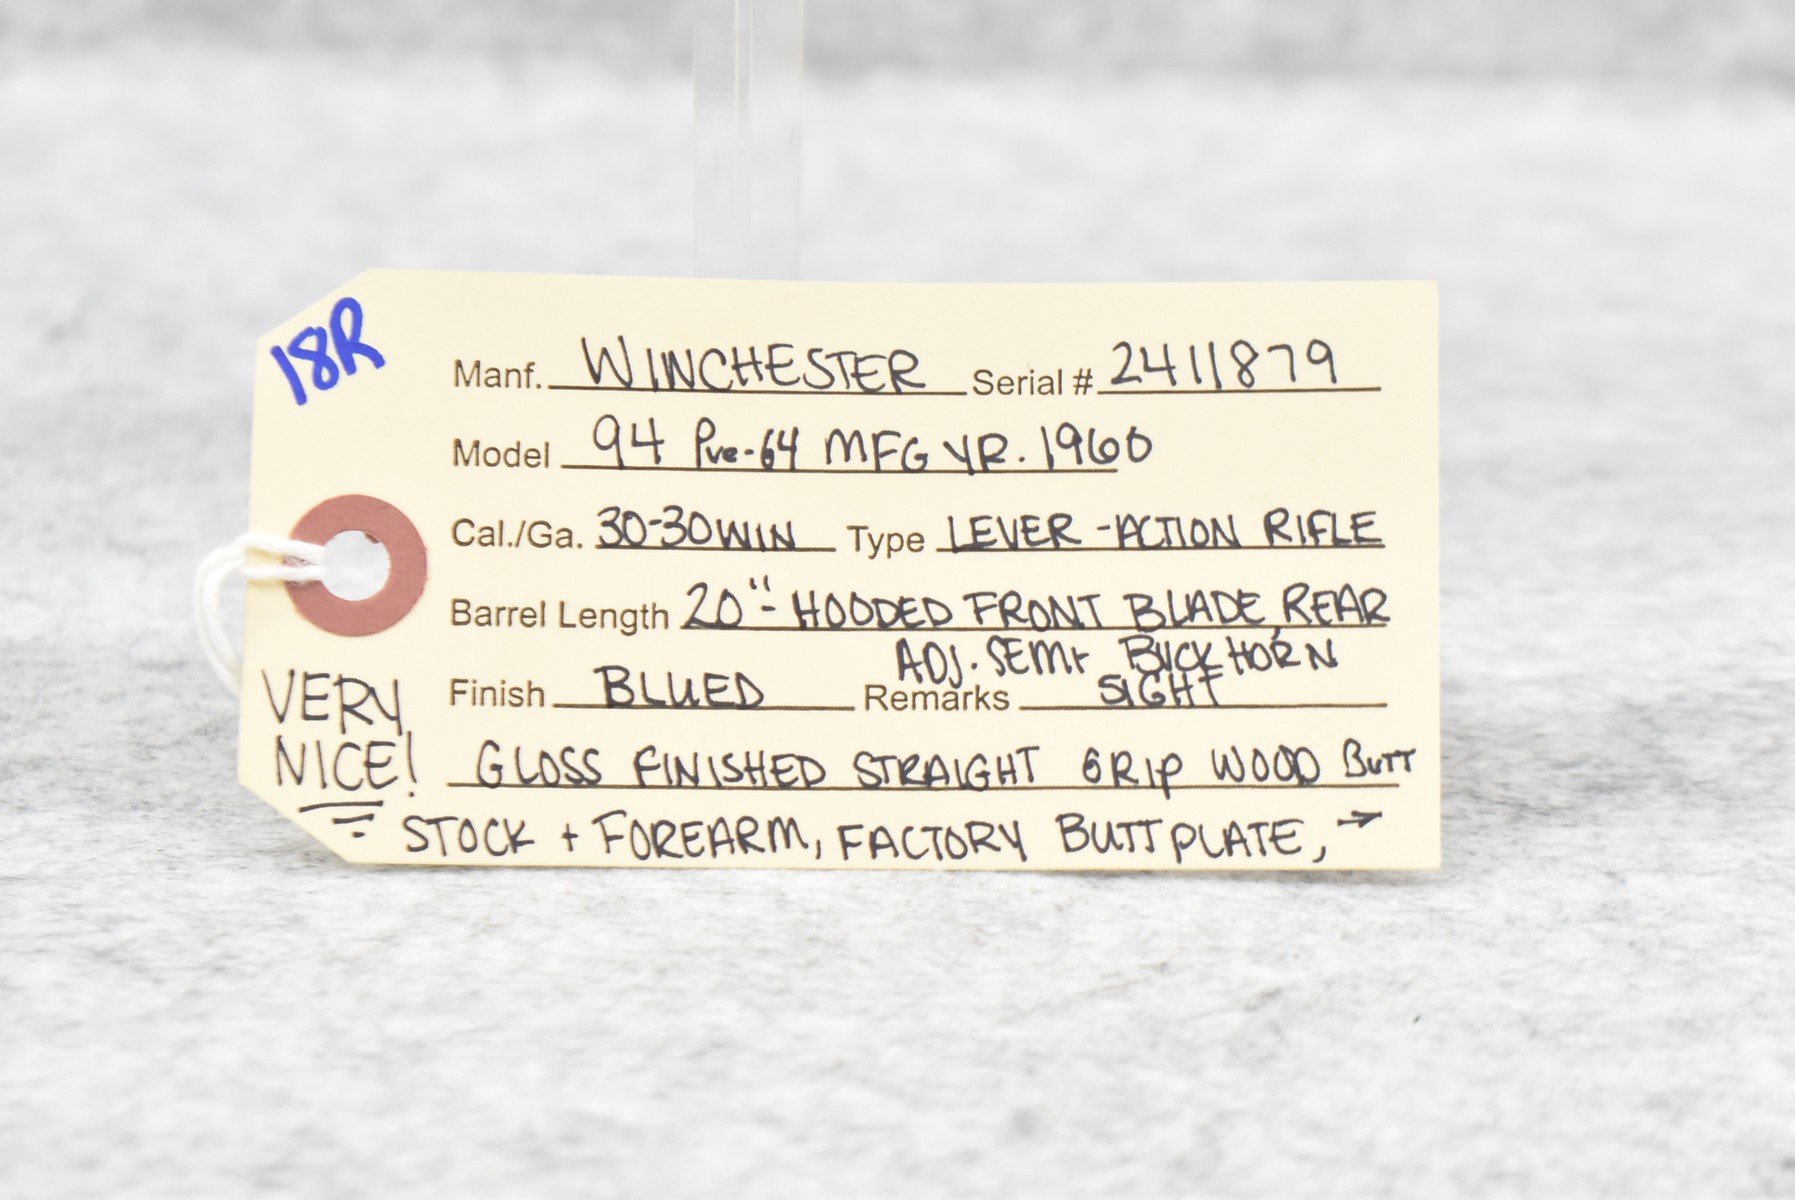 18R
Manf. WINCHESTER Serial # 2411879
Model 94 Pre-64 MFG YR. 1960
Cal./Ga. 30-30WIN Type LEVER-ACTION RIFLE
Barrel Length 20"- HOODED FRONT BLADE, REAR
ADJ. SEMI BUCKHORN
Finish BLUED Remarks SIGHT
VERY
NICE!
GLOSS FINISHED STRAIGHT GRIP WOOD BUTT
STOCK + FOREARM, FACTORY BUTTPLATE, →